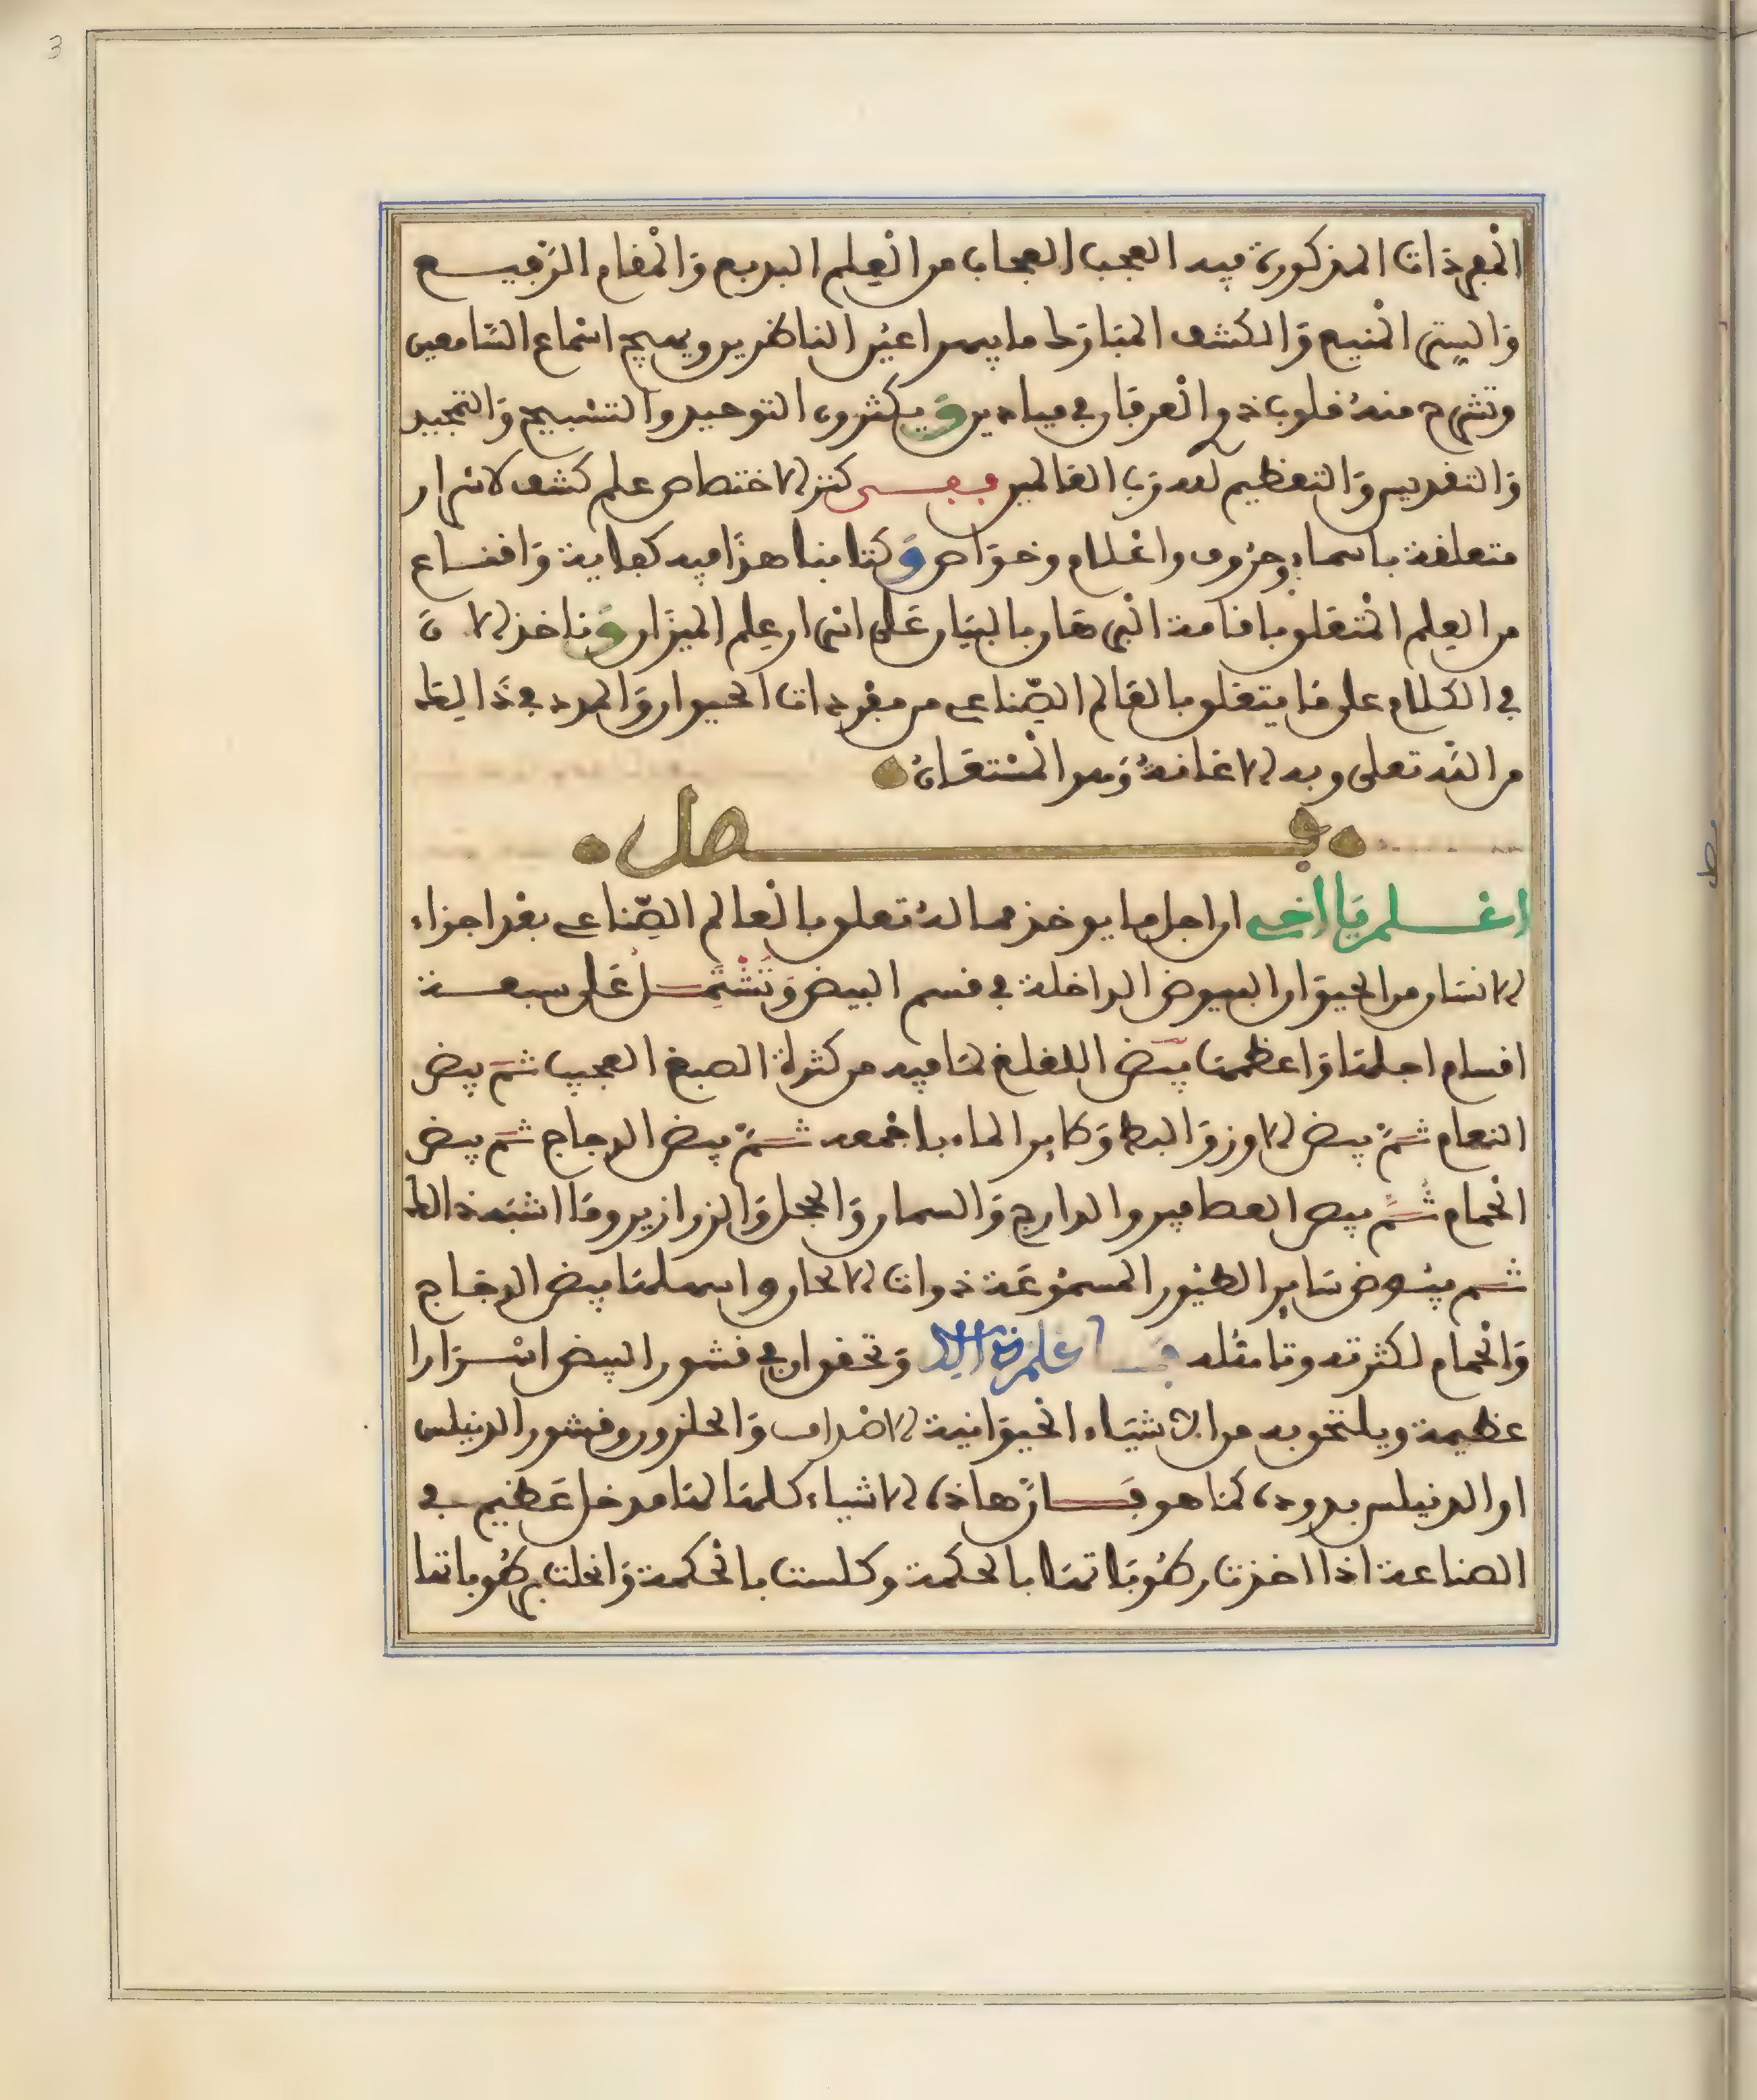 المفردات المذكورة فيه العجب العجاب من العلم البديع والمقام الرفيع
والستر المنيع والكشف المبارك ما يبهر اعين الناظرين ويبهج اسماع السامعين
وتشرح منه قلوب ذوا العرفان في ميادين ويكثرون التوحيد والتسبيح والتمجيد
والتقديس والتعظيم لله رب العالمين ففي كنز الاختصاص علم كشف الاسرار
متعلقة باسماء وحروف واعلام وخواص وكتابنا هذا فيه كفاية واقناع
من العلم المتعلق باقامة البرهان بالبيان على اسرار علم الميزان وناخذ الان
في الكلام على ما يتعلق بالعالم الصناعي من مفردات الحيوان والمدد في ذالك
من الله تعلى وبه الاعانة وهو المستعان
فصل
اعلم يا اخي ان اجل ما يوخذ مما له تعلق بالعالم الصناعي بعد اجزاء
الانسان من الحيوان البيوض الداخلة في قسم البيض وتشتمل على سبعة
اقسام اجلها واعظمها بيض اللقلق لما فيه من كثرة الصبغ العجيب ثم بيض
النعام ثم بيض الاوز والبط وطاير الماء باجمعه ثم بيض الدجاج ثم بيض
الحمام ثم بيض العصافير والدارج والسمان والحجل والزرازير وما اشبه ذالك
ثم بيوض ساير الطيور المسموعة ذوات الالحان واسهلها بيض الدجاج
والحمام لكثرته وتامله فاعلم ذالك وتحقق ان في قشور البيض اسرارا
عظيمة ويلتحق به من الاشياء الحيوانية الاصداف والحلزون وقشور الدنيلس
او الدنيلس بدوده كما هو فان هاذه الاشياء كلها لها مدخل عظيم في
الصناعة اذا اخذت رطوباتها بالحكمة وكلست بالحكمة وانحلت برطوباتها
3